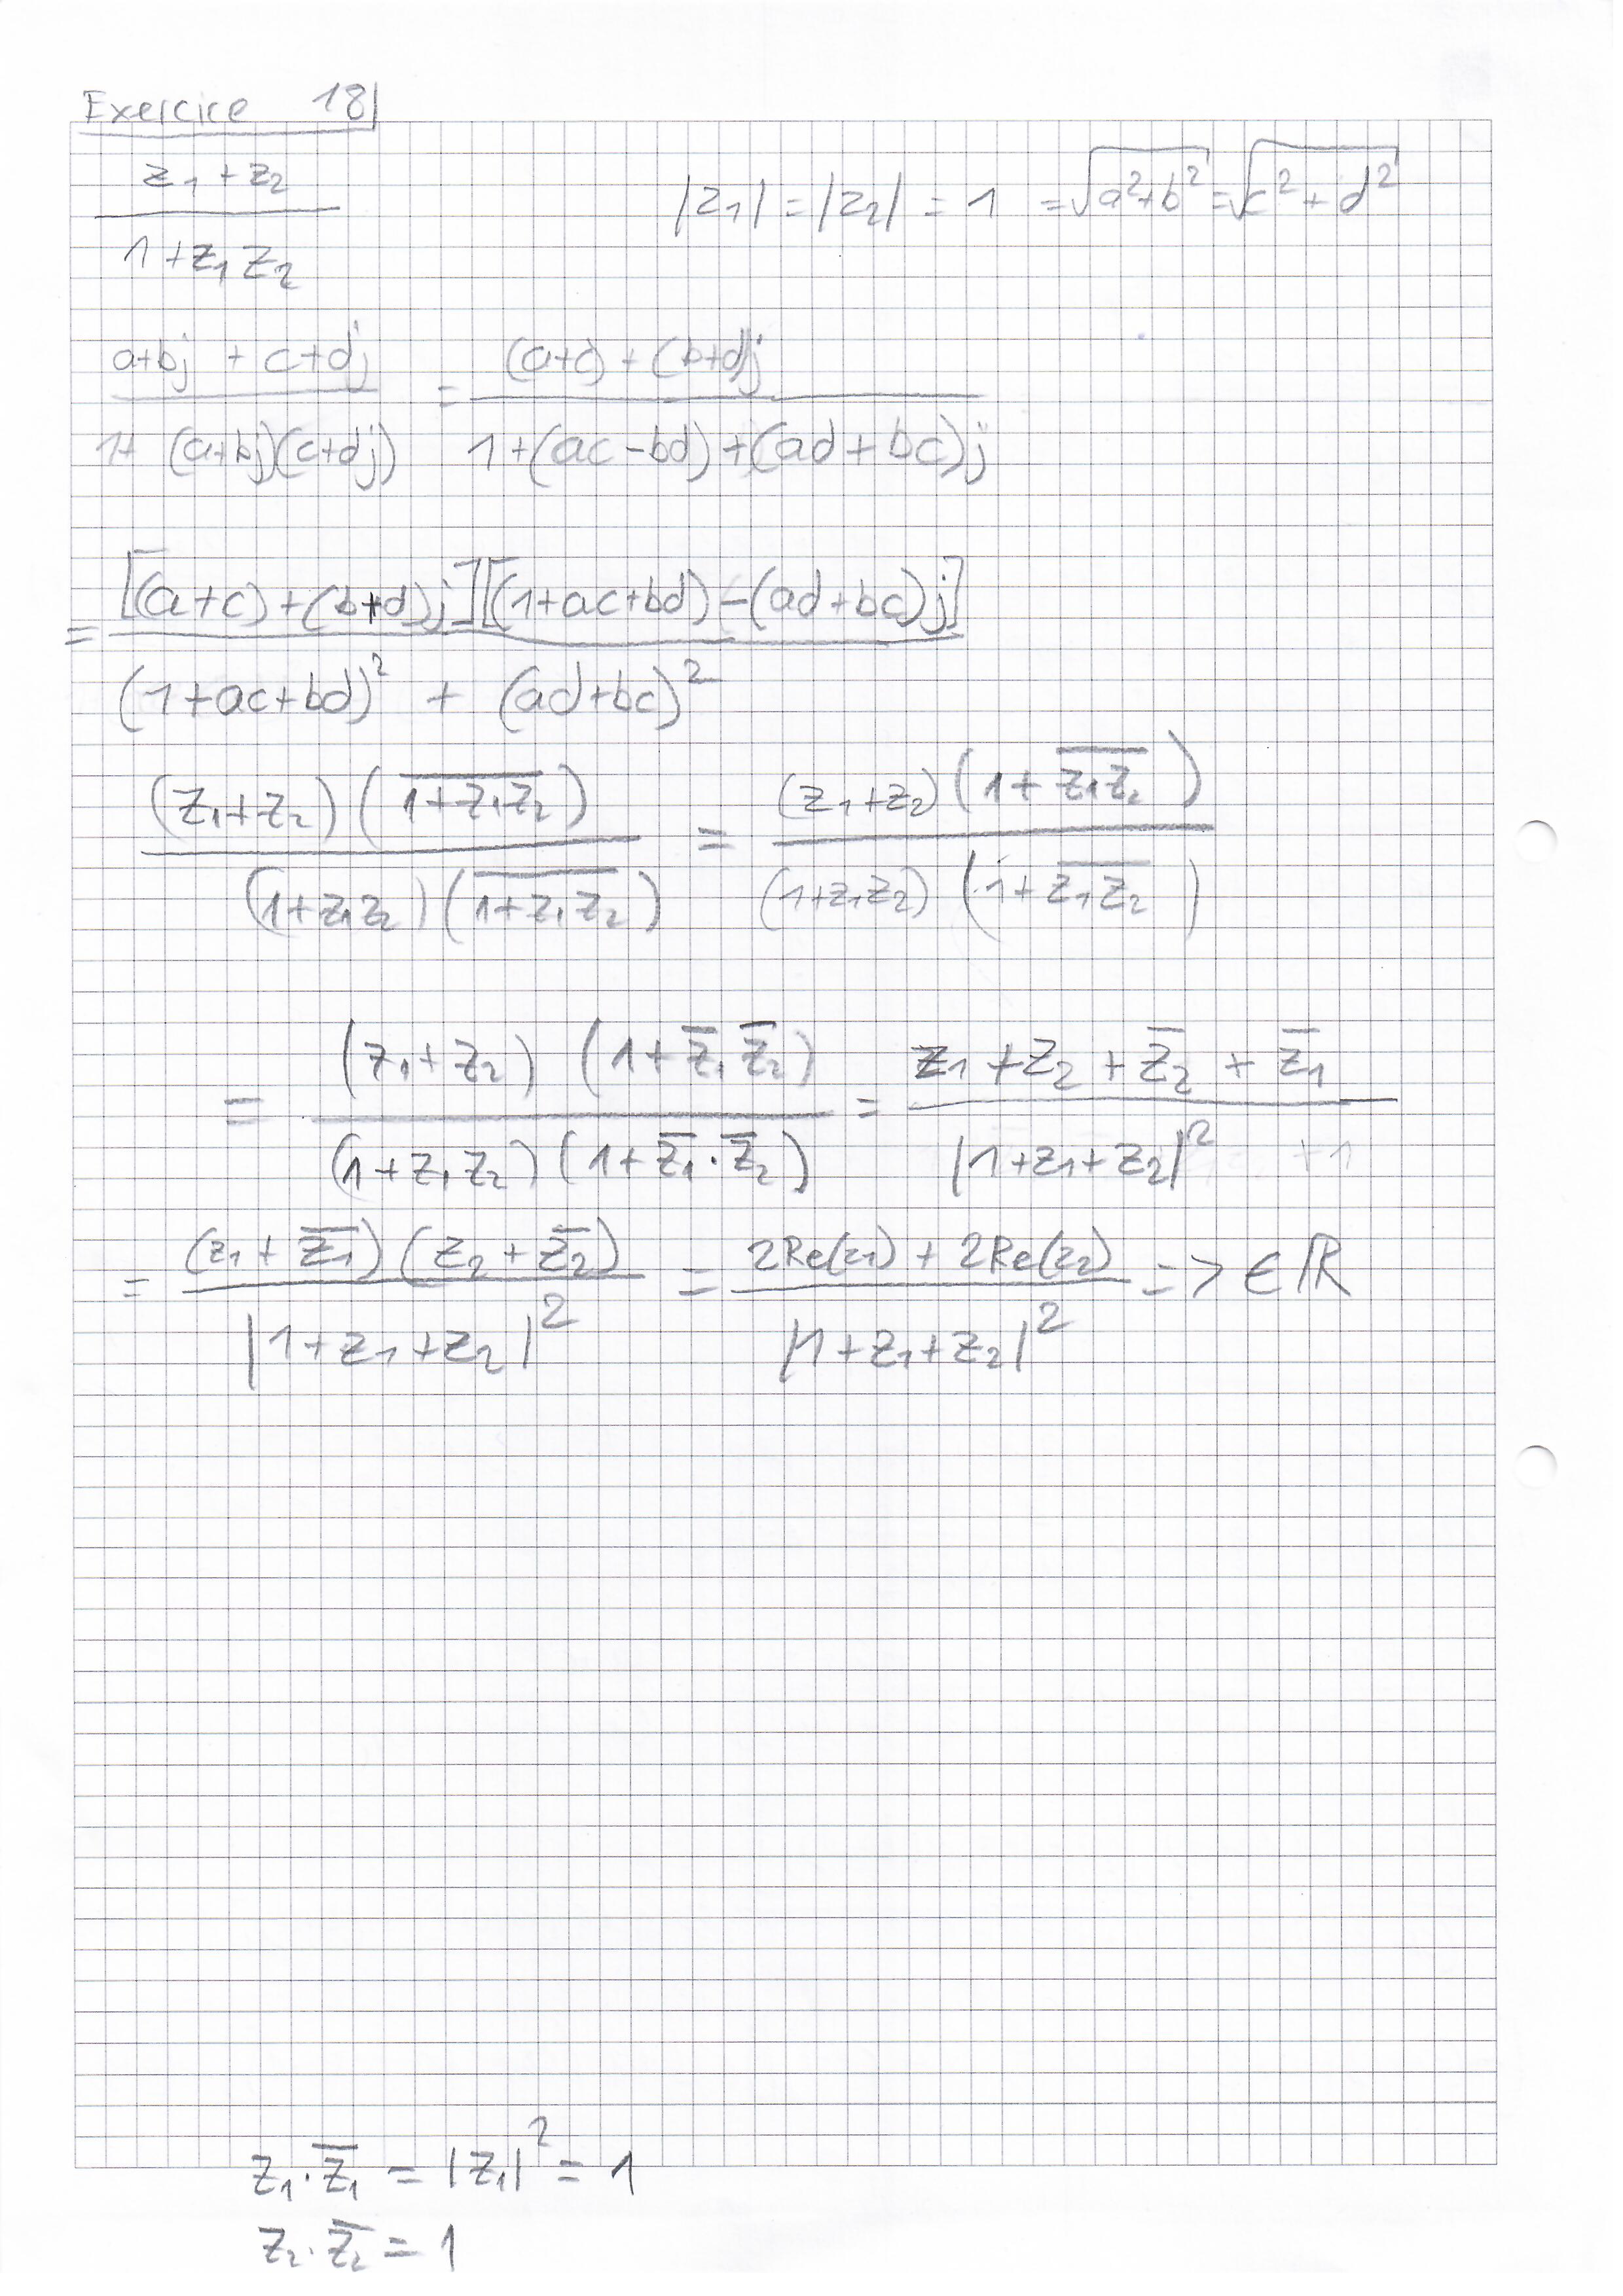 Exercice 18
z1 + z2 / 1 + z1 z2    |z1| = |z2| = 1 = √(a²+b²) = √(c²+d²)
a+bj + c+dj / 1+ (a+bj)(c+dj) = (a+c) + (b+d)j / 1+(ac-bd)+(ad+bc)j
= [(a+c)+(b+d)j][(1+ac+bd)-(ad+bc)j] / (1+ac+bd)² + (ad+bc)²
(z1+z2)(\overline{1+z1z2}) / (1+z1z2)(\overline{1+z1z2}) = (z1+z2)(1+\overline{z1z2}) / (1+z1z2)(1+\overline{z1z2})
= (z1+z2)(1+z̅1 z̅2) / (1+z1z2)(1+z̅1·z̅2) = z1+z2+z̅2+z̅1 / |1+z1+z2|²
= (z1+z̅1)(z2+z̅2) / |1+z1+z2|² = 2Re(z1) + 2Re(z2) / |1+z1+z2|² => ∈ ℝ
z1·z̅1 = |z1|² = 1
z2·z̅2 = 1